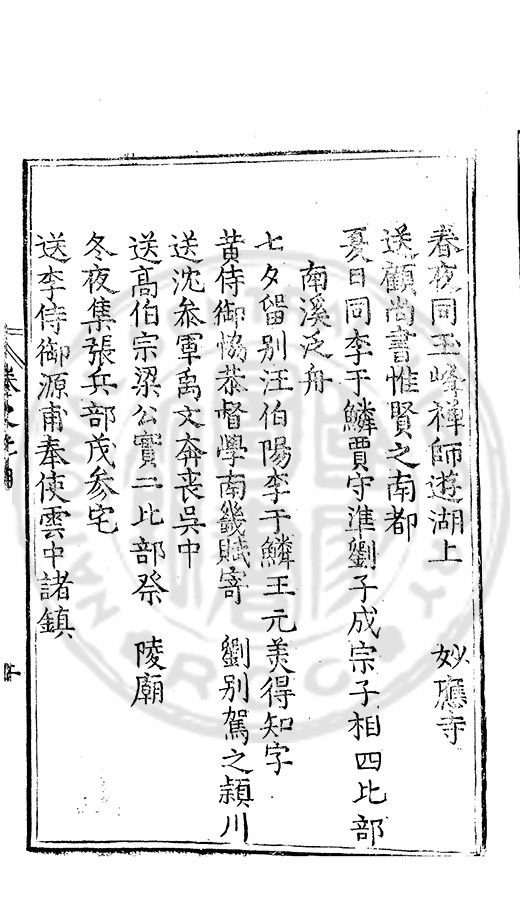 春夜同玉峰禪師遊湖上　妙應寺
送顧尚書惟賢之南都
夏日同李于鱗賈守準劉子成宗子相四比部
南溪泛舟
七夕留別汪伯陽李于鱗王元美得知字
黄侍御恊恭督學南畿賦寄　劉别駕之頴川
送沈叅軍禹文奔丧吳中
送髙伯宗梁公實二比部祭　陵廟
冬夜集張兵部茂叅宅
送李侍御源甫奉使雲中諸鎮